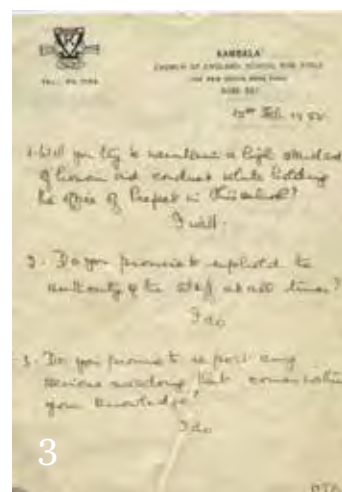 KAMBALA
CHURCH OF ENGLAND SCHOOL FOR GIRLS
ROSE BAY
10th Feb. 19
1. Will you try to maintain a high standard
of honour and conduct while holding
the office of Prefect in this school?
I will.
2. Do you promise to uphold the
authority of the staff at all times?
I do
3. Do you promise to report any
serious wrongdoing that comes within
your knowledge?
I do
3